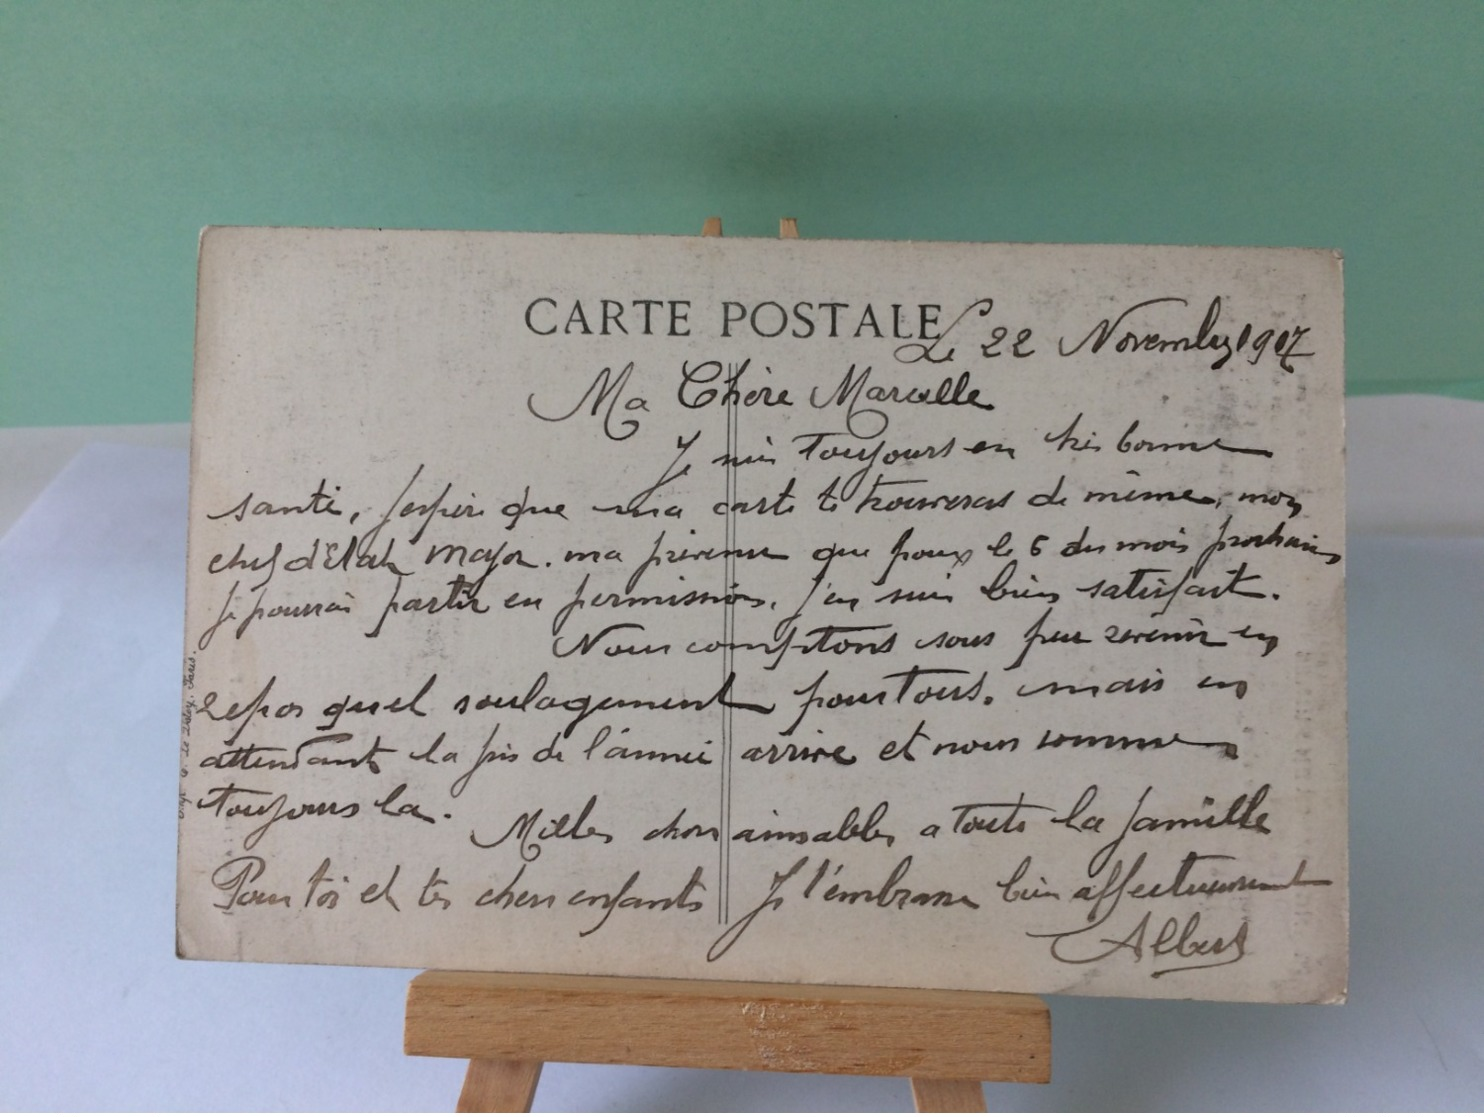 CARTE POSTALE
Le 22 Novembre 1917
Ma Chère Marcelle
Je suis Toujours en très bonne
santé, j'espère que ma carte te trouveras de même, mon
chef d'Etat Major. ma prévenu que pour le 6 du mois prochain
je pourrai partir en permission. j'en suis bien satisfait.
Nous comptons sous peu revenir en
repos quel soulagement pour Tous. mais en
attendant la fin de l'année arrive et nous somme
toujours la.
Milles choses aimables a Toute la famille
Pour toi et tes chers enfants Je t'embrasse bien affectueusement
Albert
Le Deley, Paris.